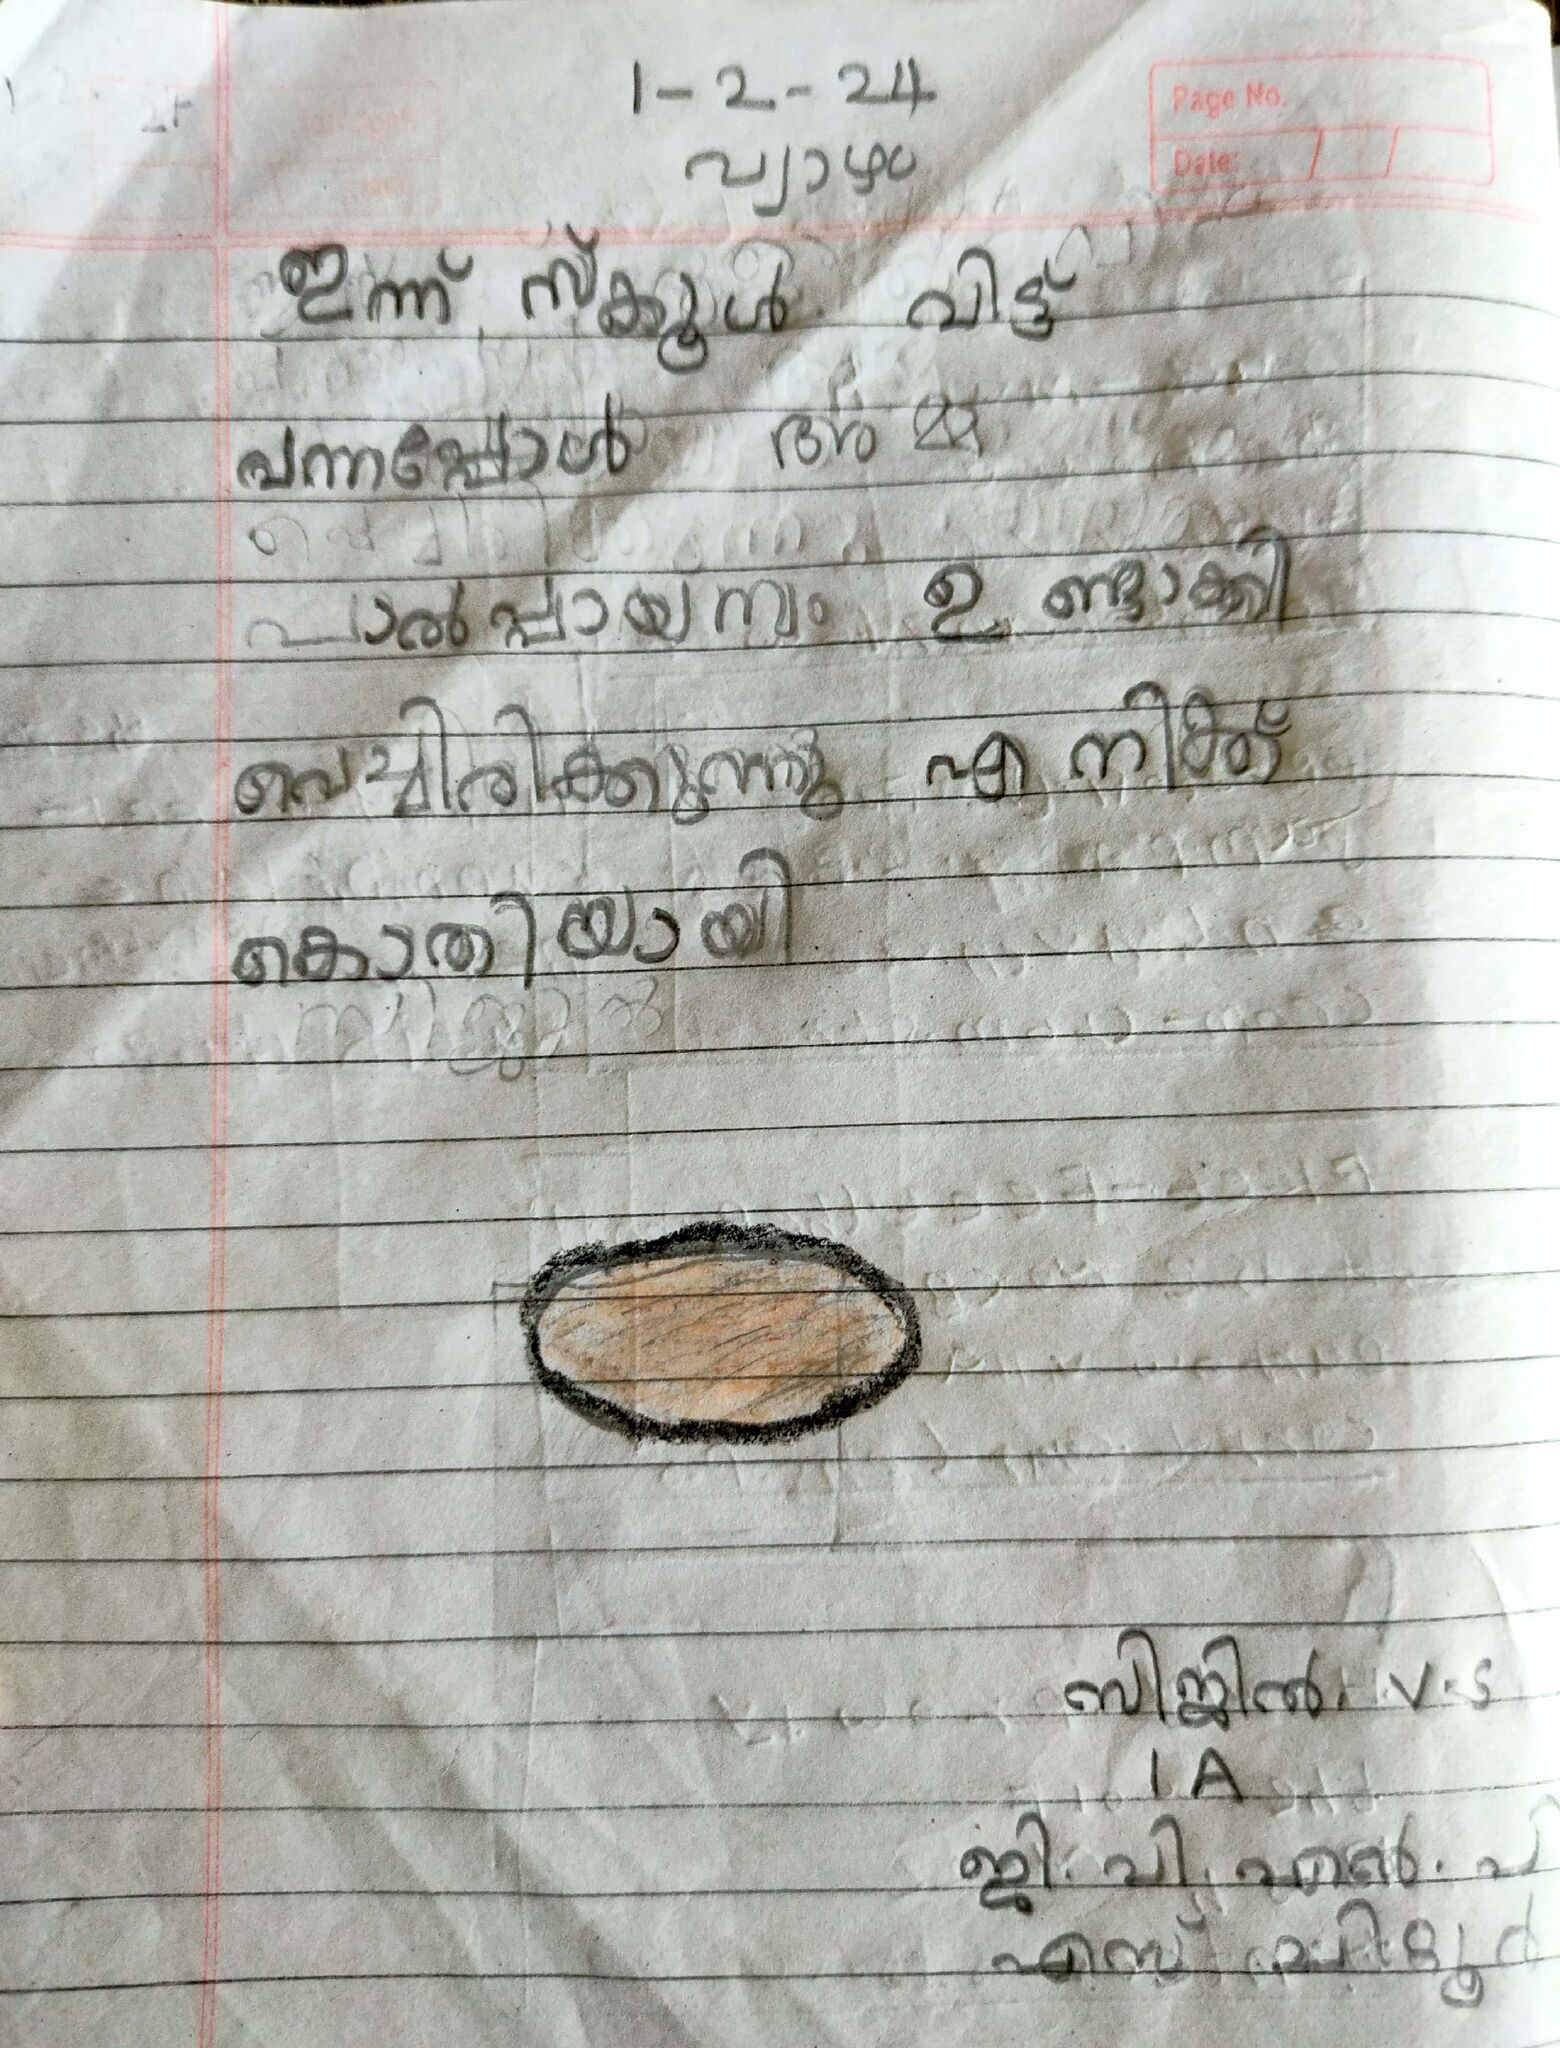 1-2-24
Page No.
Date: / /
വ്യാഴം
ഇന്ന് സ്ക്കൂൾ വിട്ട്
വന്നപ്പോൾ അമ്മ
പാൽപ്പായസം ഉണ്ടാക്കി
വെച്ചിരിക്കുന്നു എനിക്ക്
കൊതിയായി
സിജിൽ. V.S
1 A
ജി. വി. എൽ. പി
എസ്